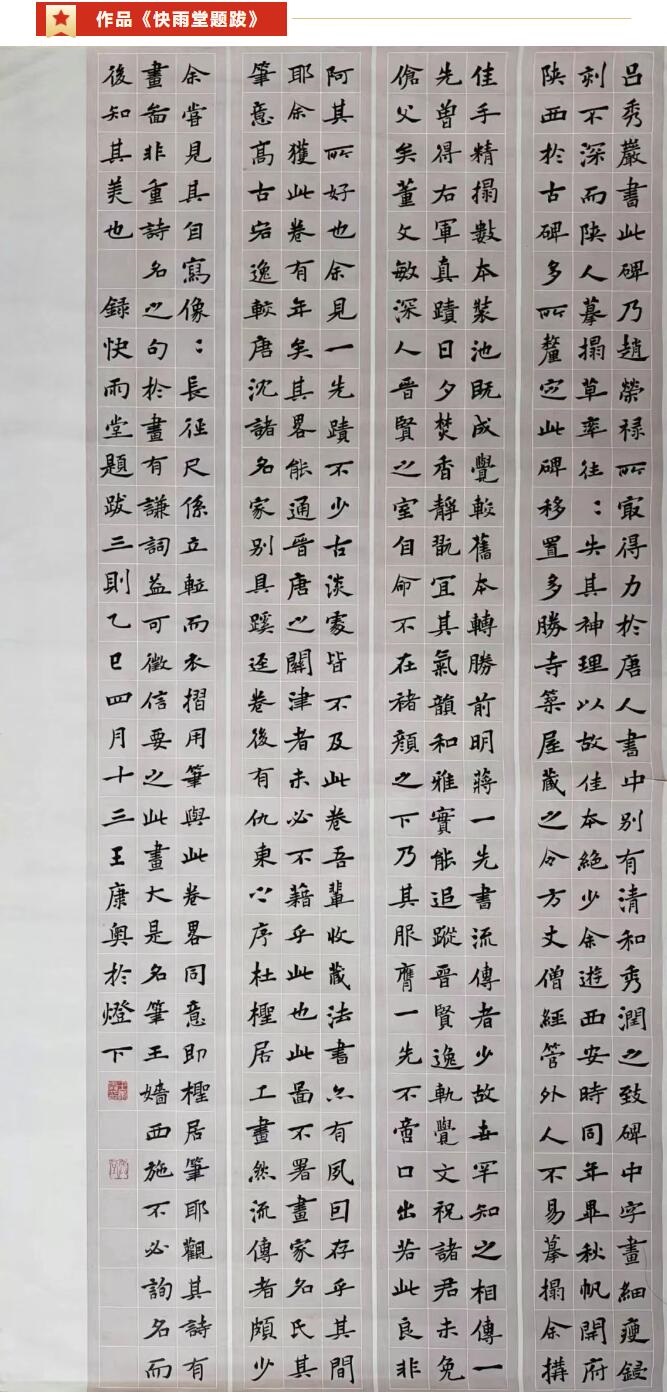 作品《快雨堂题跋》
吕秀巖書此碑乃趙榮禄所㝡得力於唐人書中别有清和秀潤之致碑中字畫細瘦鋟
刻不深而陕人摹搨草率往：失其神理以故佳本絶少余遊西安時同年畢秋帆開府
陕西於古碑多所釐定此碑移置多勝寺築屋藏之令方丈僧經管外人不易摹搨余搆
佳手精搨數本裝池既成覺較舊本轉勝前明蔣一先書流傳者少故世罕知之相傳一
先曽得右軍真蹟日夕焚香靜翫冝其氣韻和雅實能追蹤晋賢逸軌覺文祝諸君未免
傖父矣董文敏深人晋賢之室自命不在褚顔之下乃其服膺一先不啻口出若此良非
阿其所好也余見一先蹟不少古淡䖏皆不及此卷吾輩收蔵法書亦有夙回存乎其間
耶余獲此卷有年矣其畧能通晋唐之關津者未必不藉乎此也此啚不署畫家名氏其
筆意髙古宕逸較唐沈諸名家别具蹊迳卷後有仇東之序杜檉居工畫然流傳者頗少
余嘗見其自寫像：長徑尺係立軸而衣摺用筆與此卷畧同意即檉居筆耶觀其詩有
畫啚非重詩名之句於畫有謙詞益可徵信要之此畫大是名筆王嬙西施不必詢名而
後知其美也 録快雨堂題跋三則乙巳四月十三王康奥於燈下